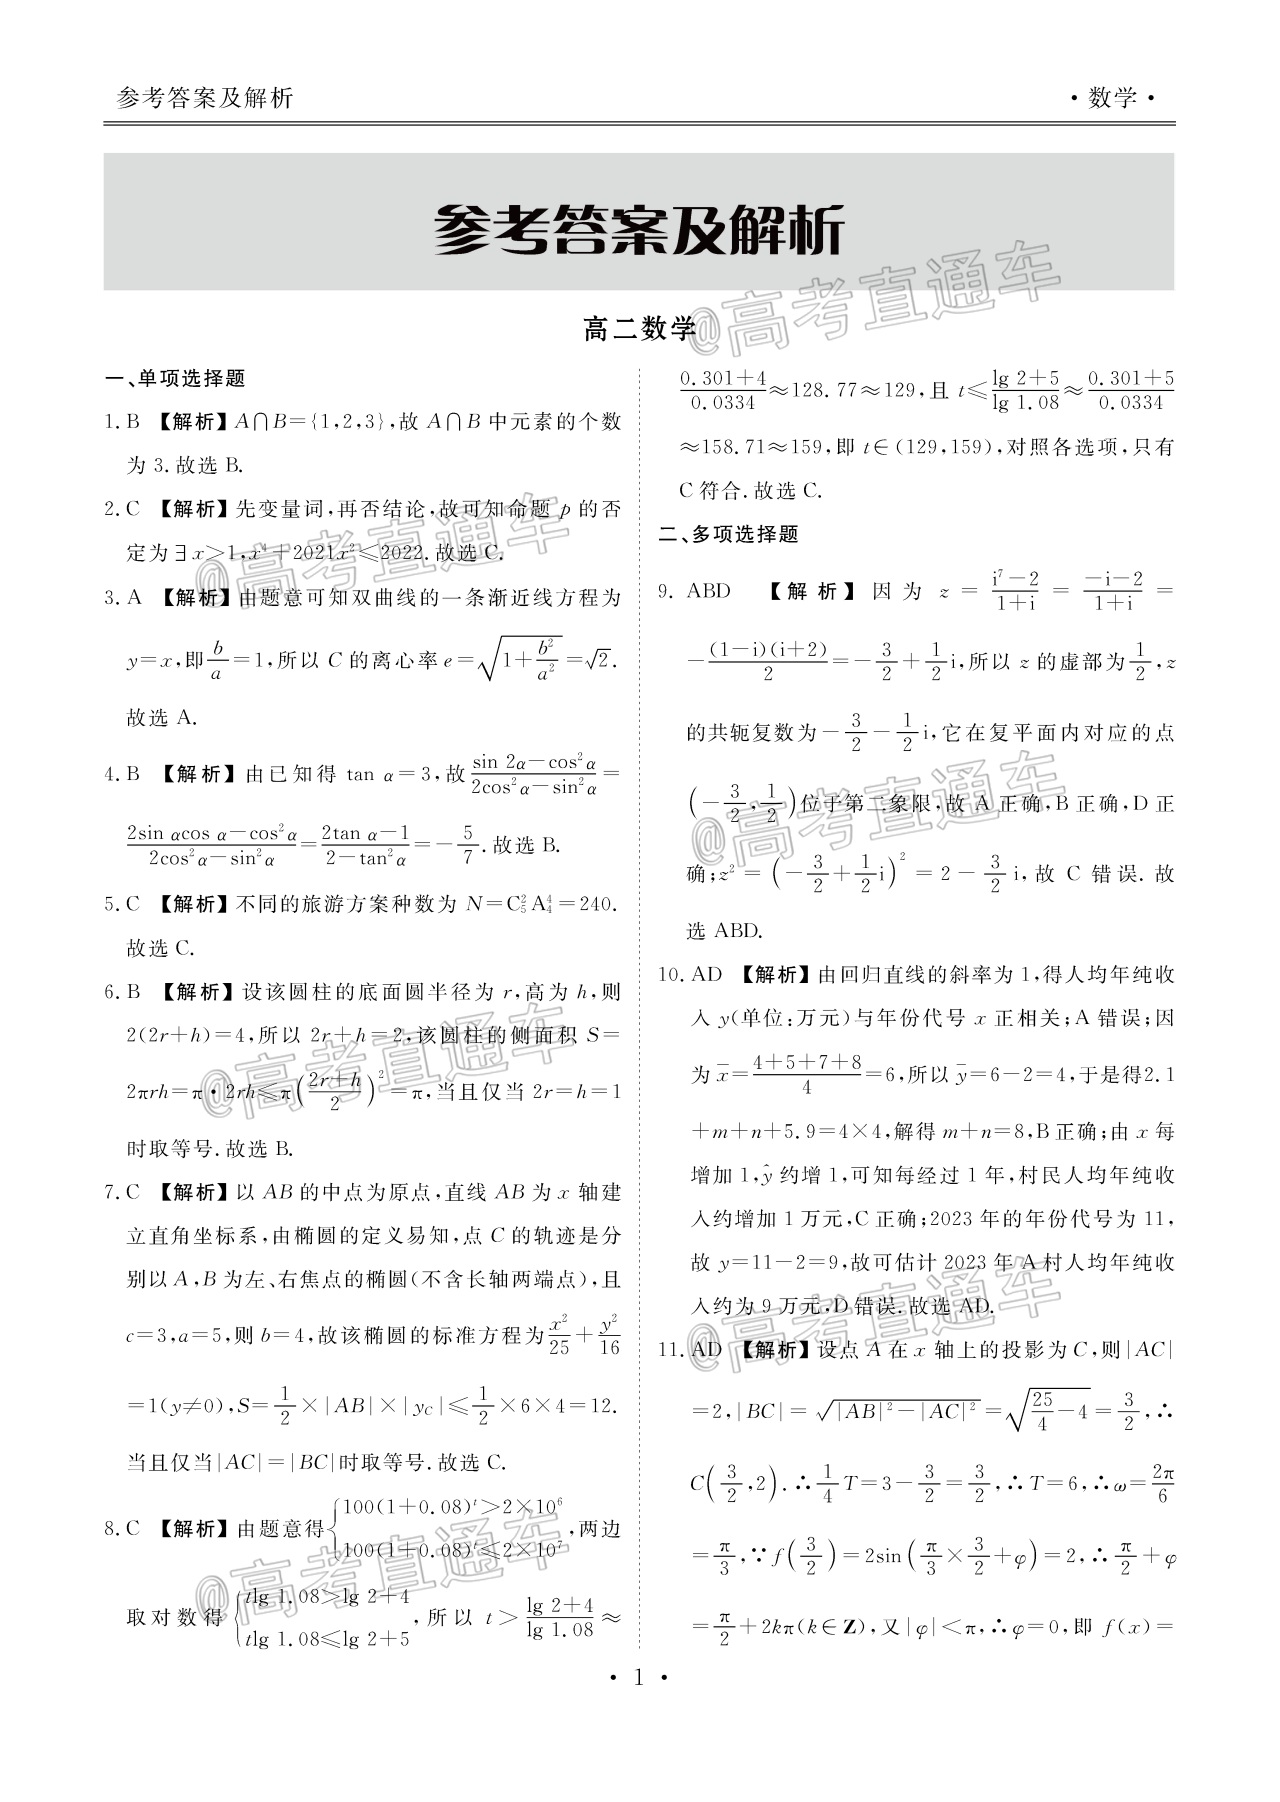 参考答案及解析
·数学·
参考答案及解析
高二数学
一、单项选择题
1. B 【解析】A∩B={1,2,3},故 A∩B 中元素的个数
为 3.故选 B.
2. C 【解析】先变量词,再否结论,故可知命题 p 的否
定为∃x>1,x⁴+2021x²≤2022.故选 C.
3. A 【解析】由题意可知双曲线的一条渐近线方程为
y=x,即b/a=1,所以 C 的离心率 e=√(1+b²/a²)=√2.
故选 A.
4. B 【解析】由已知得 tan α=3,故(sin 2α-cos²α)/(2cos²α-sin²α)=
(2sin αcos α-cos²α)/(2cos²α-sin²α)=(2tan α-1)/(2-tan²α)=-5/7.故选 B.
5. C 【解析】不同的旅游方案种数为 N=C₅²A₄⁴=240.
故选 C.
6. B 【解析】设该圆柱的底面圆半径为 r,高为 h,则
2(2r+h)=4,所以 2r+h=2,该圆柱的侧面积 S=
2πrh=π·2rh≤π((2r+h)/2)²=π,当且仅当 2r=h=1
时取等号.故选 B.
7. C 【解析】以 AB 的中点为原点,直线 AB 为 x 轴建
立直角坐标系,由椭圆的定义易知,点 C 的轨迹是分
别以 A,B 为左、右焦点的椭圆(不含长轴两端点),且
c=3,a=5,则 b=4,故该椭圆的标准方程为x²/25+y²/16
=1(y≠0),S=1/2×|AB|×|y_C|≤1/2×6×4=12.
当且仅当|AC|=|BC|时取等号.故选 C.
8. C 【解析】由题意得{100(1+0.08)ᵗ>2×10⁶
100(1+0.08)ᵗ≤2×10⁷,两边
取对数得{tlg 1.08>lg 2+4
tlg 1.08≤lg 2+5,所以 t>(lg 2+4)/(lg 1.08)≈
(0.301+4)/0.0334≈128.77≈129,且 t≤(lg 2+5)/(lg 1.08)≈(0.301+5)/0.0334
≈158.71≈159,即 t∈(129,159),对照各选项,只有
C 符合.故选 C.
二、多项选择题
9. ABD 【解析】因为 z=(i⁷-2)/(1+i)=(-i-2)/(1+i)=
-(1-i)(i+2)/2=-3/2+1/2i,所以 z 的虚部为1/2,z
的共轭复数为-3/2-1/2i,它在复平面内对应的点
(-3/2,1/2)位于第二象限,故 A 正确,B 正确,D 正
确;z²=(-3/2+1/2i)²=2-3/2i,故 C 错误.故
选 ABD.
10. AD 【解析】由回归直线的斜率为 1,得人均年纯收
入 y(单位:万元)与年份代号 x 正相关;A 错误;因
为x̄=(4+5+7+8)/4=6,所以ȳ=6-2=4,于是得2.1
+m+n+5.9=4×4,解得 m+n=8,B 正确;由 x 每
增加 1,ŷ 约增 1,可知每经过 1 年,村民人均年纯收
入约增加 1 万元,C 正确;2023 年的年份代号为 11,
故 y=11-2=9,故可估计 2023 年 A 村人均年纯收
入约为 9 万元,D 错误.故选 AD.
11. AD 【解析】设点 A 在 x 轴上的投影为 C,则|AC|
=2,|BC|=√(|AB|²-|AC|²)=√(25/4-4)=3/2,∴
C(3/2,2).∴1/4T=3-3/2=3/2,∴T=6,∴ω=2π/6
=π/3,∵f(3/2)=2sin(π/3×3/2+φ)=2,∴π/2+φ
=π/2+2kπ(k∈Z),又|φ|<π,∴φ=0,即 f(x)=
·1·
@高考直通车
@高考直通车
@高考直通车
@高考直通车
@高考直通车
@高考直通车